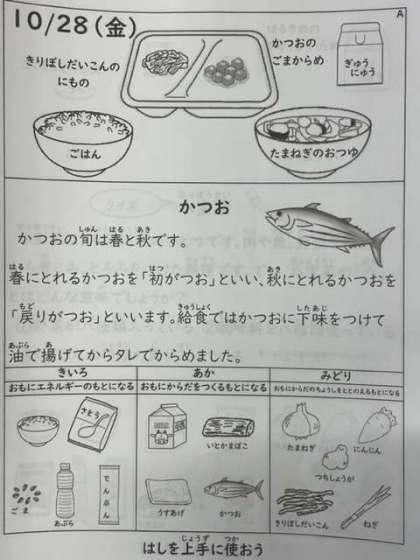 10/28(金)
A
きりぼしだいこんの
にもの
かつおの
ごまからめ
ぎゅう
にゅう
ごはん
たまねぎのおつゆ
かつお
かつおの旬は春と秋です。
しゅん はる あき
春にとれるかつおを「初がつお」といい、秋にとれるかつおを
はる はつ あき
「戻りがつお」といいます。給食ではかつおに下味をつけて
もど きゅうしょく したあじ
油で揚げてからタレでからめました。
あぶら あ
きいろ
おもにエネルギーのもとになる
さとう
ごま
あぶら
でんぷん
あか
おもにからだをつくるもとになる
いとかまぼこ
うすあげ
かつお
みどり
おもにからだのちょうしをととのえるもとになる
たまねぎ
にんじん
つちしょうが
きりぼしだいこん
ねぎ
はしを上手に使おう
じょうず つか